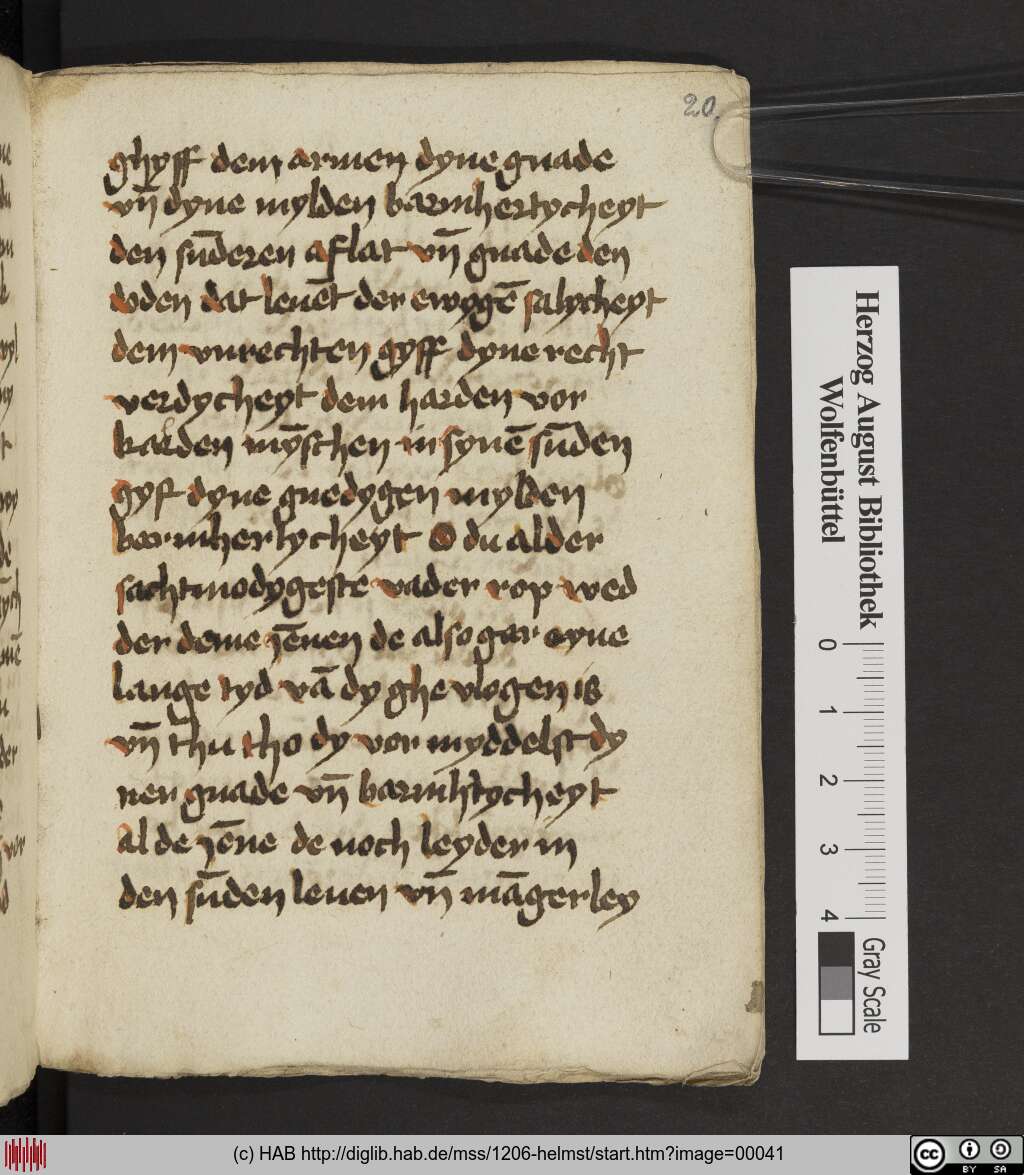 20.
ghyff dem armen dyne gnade
vn̄ dyne mylden barmhertycheyt
den sūderen aflat vn̄ gnade den
doden dat leuēt der ewygē salycheyt
dem vnrechten gyff dyne recht
verdycheyt dem harden vor
harden mȳschen in synē sūden
gyf dyne gnedygen mylden
barmhertycheyt O du alder
sachtmodygeste vader rop wed
der deme jēnen de also gar eyne
lange tyd vā dy ghe vlogen is
vn̄ thu tho dy vor myddelst dy
ner gnade vn̄ barmh̄tycheyt
al de jēne de noch leyder in
den sūden leuen vn̄ māgerley
Herzog August Bibliothek
Wolfenbüttel
0 1 2 3 4
Gray Scale
(c) HAB http://diglib.hab.de/mss/1206-helmst/start.htm?image=00041
cc BY SA